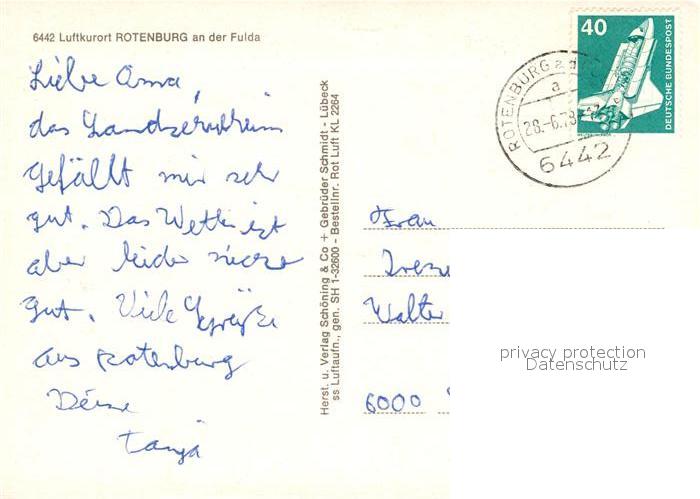 6442 Luftkurort ROTENBURG an der Fulda
Liebe Oma,
das Landschulheim
gefällt mir sehr
gut. Das Wetter ist
aber leider nicht so
gut. Viele Grüße
aus Rotenburg
Deine
Tanja
Herst. u. Verlag Schöning & Co + Gebrüder Schmidt - Lübeck
ss Luftaufn., gen. SH 1-32600 - Bestellnr. Rot Luft KL 2264
40
DEUTSCHE BUNDESPOST
ROTENBURG a d
a
28.-6.78
6442
Frau
Walter
6000
privacy protection
Datenschutz